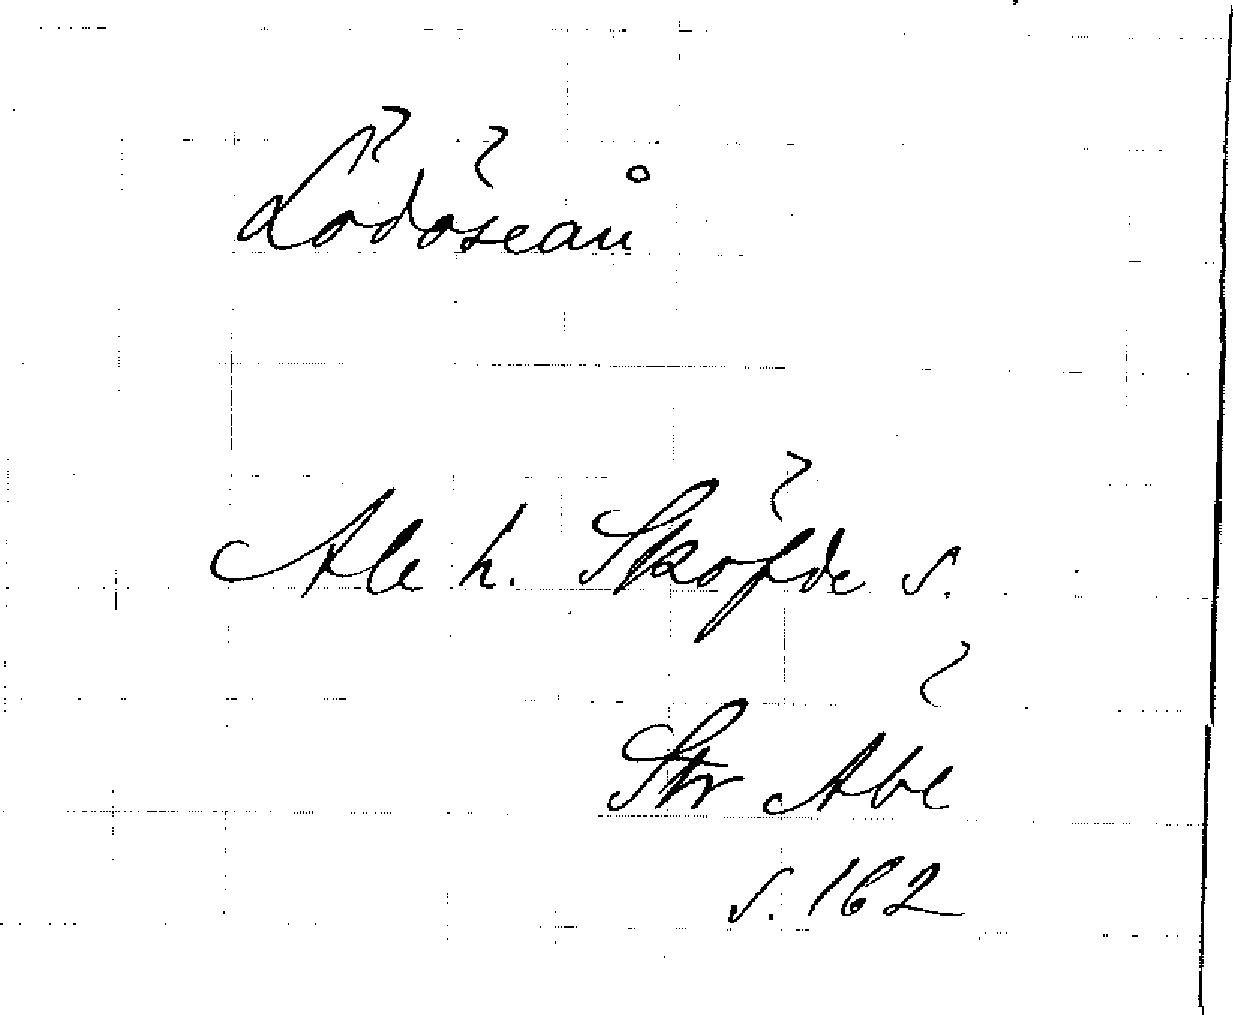 Lödöseån
Ale h. Sköfde s.
Str Abé
s. 162